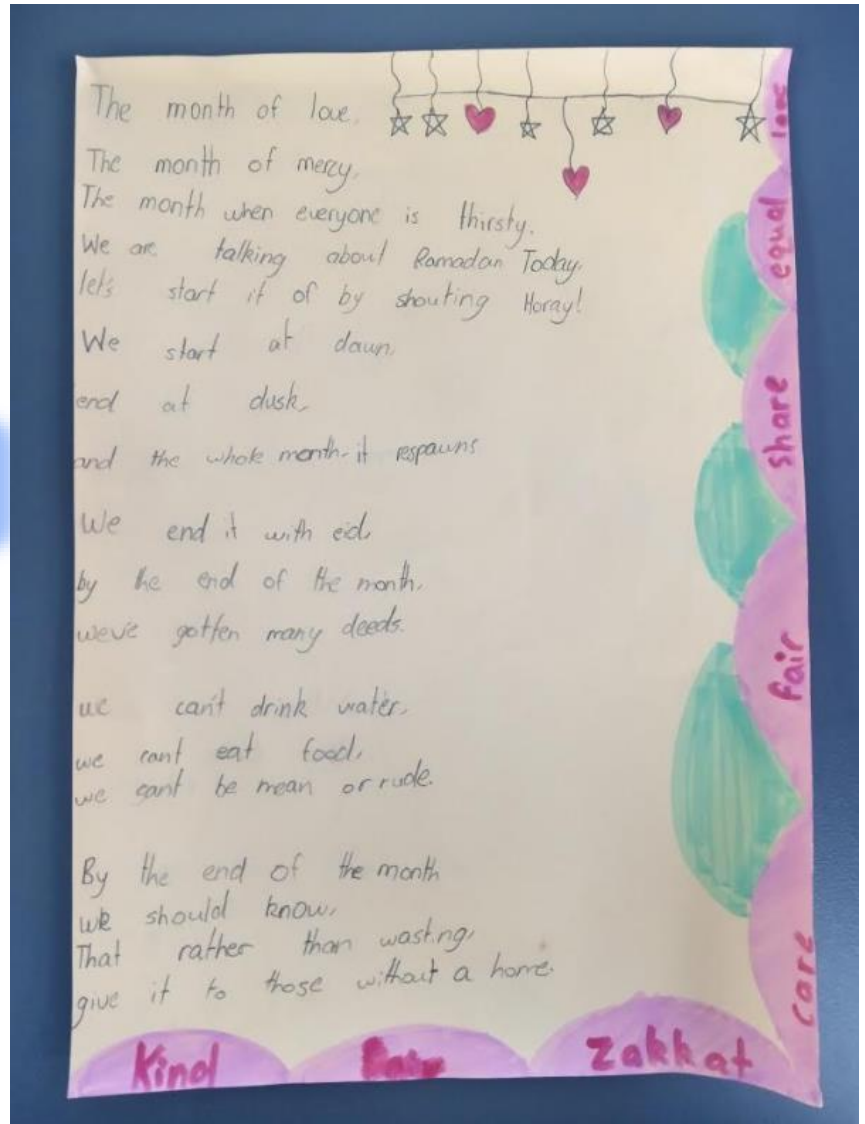 The month of love,
The month of mercy,
The month when everyone is thirsty.
We are talking about Ramadan Today.
let's start it of by shouting Horay!
We start at dawn,
end at dusk,
and the whole month it respawns
We end it with eid,
by the end of the month,
we've gotten many deeds.
we can't drink water,
we cant eat food,
we cant be mean or rude.
By the end of the month
we should know,
That rather than wasting,
give it to those without a home.
love
equal
share
fair
care
Kind
Zakkat